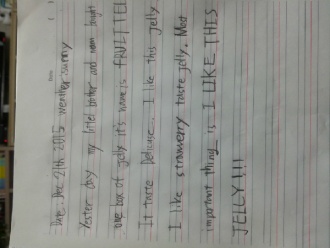 Date: Dec 21th 2015 weather: sunny
Yester day my littel borther and mom bught
one box of jelly it's name is FRUITTELI
It taste Delicuse. I like this jelly
I like strawerry taste jelly. Most
important thing is I LIKE THIS
JELLY!!!